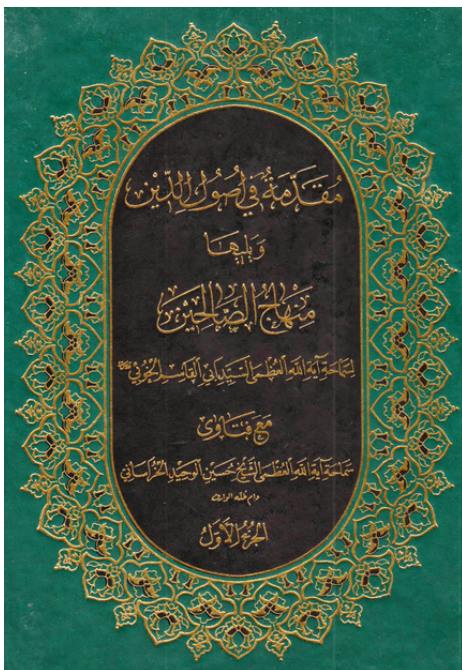 مُقَدَّمَةٌ فِي أُصُولِ الدِّيْنِ
وَيَلِيهَا
مِنْهَاجُ الصَّالِحِيْنَ
لِسَمَاحَةِ آيَةِ اللهِ الْعُظْمَى السَّيِّدِ أَبِي الْقَاسِمِ الْخُوئِي
مَعَ فَتَاوَى
سَمَاحَةِ آيَةِ اللهِ الْعُظْمَى الشَّيْخِ حُسَيْنِ الْوَحِيدِ الْخُرَاسَانِي
دام ظله الوارف
الْجُزْءُ الْأَوَّلُ